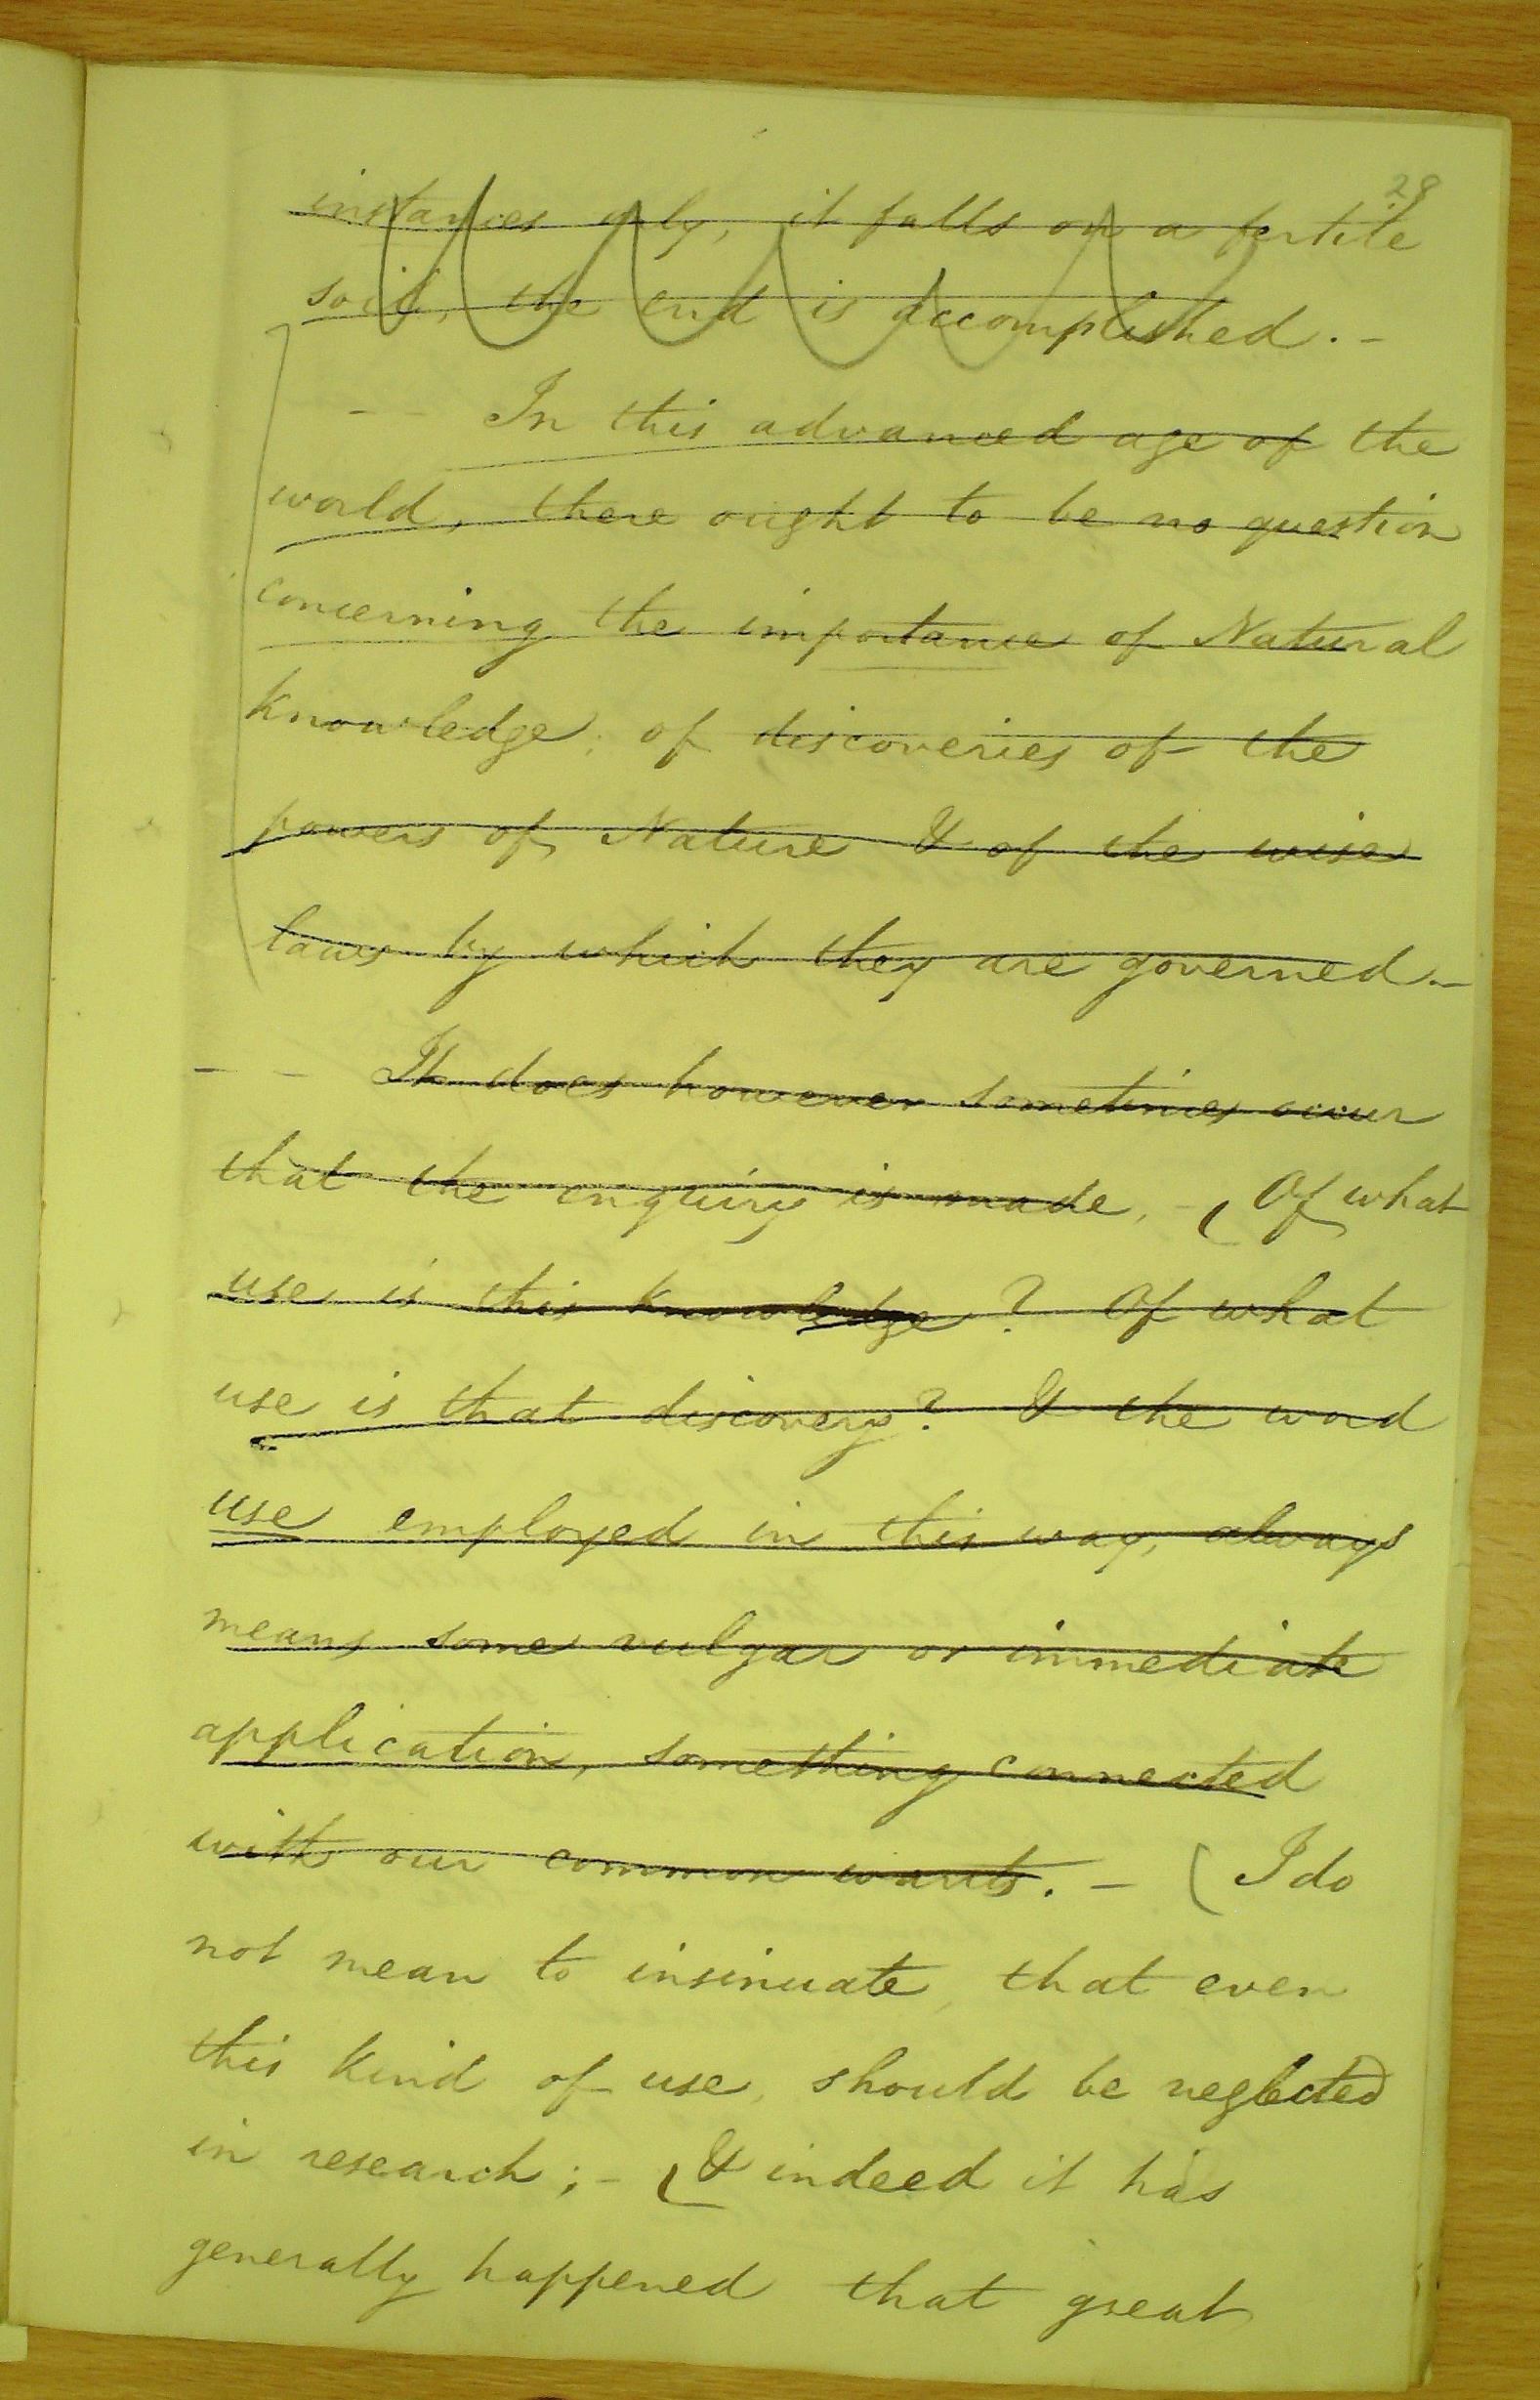 28
instances only, it falls on a fertile
soil, the end is accomplished. -
- - In this advanced age of the
world, there ought to be no question
concerning the importance of Natural
knowledge; of discoveries of the
powers of Nature & of the wise
laws by which they are governed -
- - It does however sometimes occur
that the enquiry is made, - ( Of what
use is this knowledge? Of what
use is that discovery? & the word
use employed in this way, always
means some vulgar or immediate
application, something connected
with our common wants. - ( I do
not mean to insinuate, that even
this kind of use, should be neglected
in research; - ( & indeed it has
generally happened that great